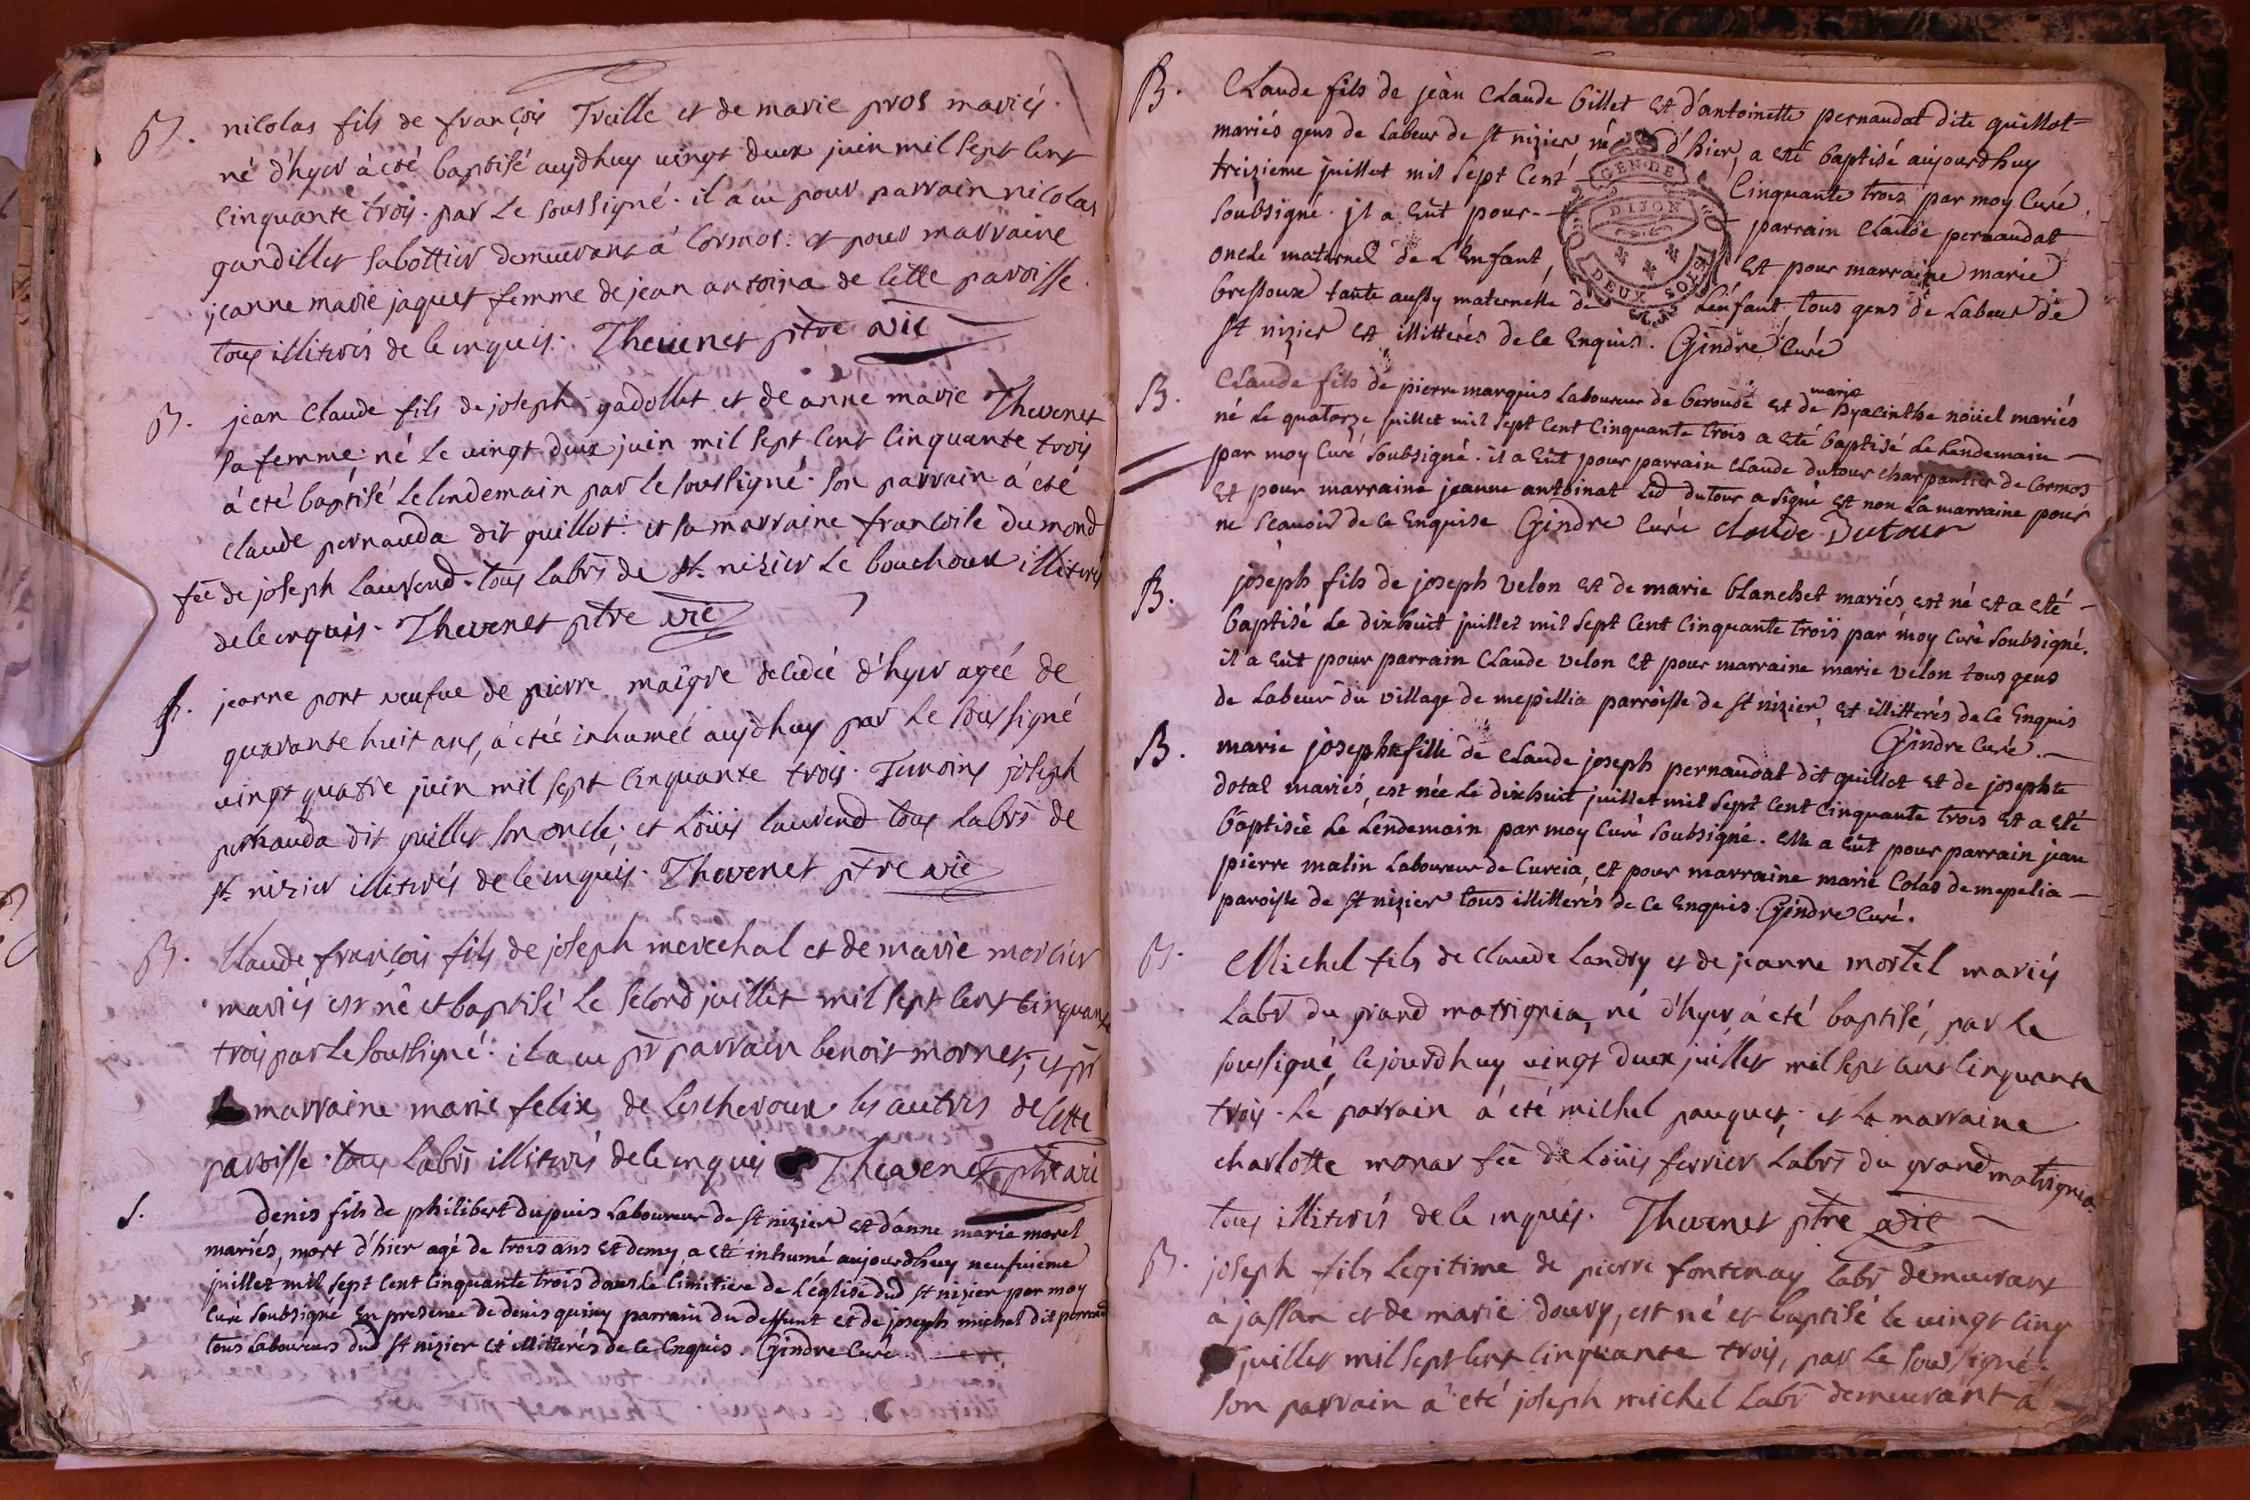 B. nicolas fils de françois Treille et de marie pros mariés.
né d'hyer à été baptisé aujdhuy vingt deux juin mil sept cent
cinquante trois. par le soussigné. il a eu pour parrain nicolas
gandillet sabottier demeurant à Cormos: et pour marraine
jeanne marie jaquet femme de jean antoina de cette paroisse.
tous illiterés de ce enquis. Thevenet ptre vic
B. jean claude fils de joseph gadollet et de anne marie Thevenet
sa femme: né le vingt deux juin mil sept cent cinquante trois
à eté baptisé le lendemain par le soussigné. son parrain à eté
claude pernauda dit guillot: et sa marraine francoise dumond
fẽe de joseph Laurend. tous labrs de st nizier le bouchoux illiterés
de ce enquis. Thevenet ptre vic
S. jeanne pont veufue de pierre maigre decedée d'hyer agée de
quarante huit ans, à etée inhumée aujdhuy par le soussigné
vingt quatre juin mil sept cinquante trois. Temoins joseph
pernauda dit guillet son oncle: et Loüis laurend tous labrs de
st nizier illiterés de ce enquis. Thevenet ptre vic
B. Claude françois fils de joseph merechal et de marie morcier
mariés est né et baptisé le second juillet mil sept cent cinquante
trois par le soussigné: il a eu pr parrain benoit mornet; et pr
marraine marie felix de Lescheroux les autres de cette
paroisse. tous labrs illiterés de ce enquis Thevenet ptre vic
S. Denis fils de philibert dupuis Laboureur de st nizier et d'anne marie morel
mariés, mort d'hier agé de trois ans et demy, a eté inhumé aujourdhuy neufvieme
juillet mil sept cent cinquante trois dans le cimitiere de l'eglise dud st nizier par moy
Curé soubsigné En presence de denis quiny parrain du deffunt et de joseph michel dit perraud
tous Laboureurs dud st nizier et illitterés de ce enquis. Gindre Curé.
B. Claude fils de jean Claude Gillet et d'antoinette pernaudat dite guillot
mariés gens de Labeur de st nizier né d'hier, a eté baptisé aujourdhuy
treizieme juillet mil sept Cent Cinquante trois par moy Curé
soubsigné. jl a Eüt pour parrain Claude pernaudat
oncle maternel de L'Enfant, et pour marraine marie
bressoux tante aussy maternelle de L'enfant, tous gens de Labeur de
st nizier et illitterés de ce Enquis. Gindre Curé
GEN. DE
DIJON
DEUX SOLS
B. Claude fils de pierre marquis Laboureur de beroude et de marie hyacinthe noüel mariés
né le quatorze juillet mil sept cent cinquante trois a eté baptisé le lendemain
par moy Curé soubsigné. il a Eüt pour parrain Claude dutour charpantier de Cormos
et pour marraine jeanne antoinat led dutour a signé et non la marraine pour
ne sçauoir de ce Enquise Gindre Curé claude Dutour
B. joseph fils de joseph velon et de marie blanchet mariés, est né et a eté
baptisé le dixhuit juillet mil sept cent cinquante trois par moy Curé soubsigné.
il a Eüt pour parrain Claude velon et pour marraine marie velon tous gens
de Labeur du village de mepillia parroisse de st nizier, et illitterés de ce Enquis
Gindre Curé.
B. marie josephte fille de Claude joseph pernaudat dit guillot et de josephte
dotal mariés, est née le dixhuit juillet mil sept cent cinquante trois et a eté
baptisée le Lendemain par moy Curé soubsigné. elle a Eüt pour parrain jean
pierre malin Laboureur de Curcia, et pour marraine marie Colas de mepelia
paroisse de st nizier tous illitterés de ce Enquis. Gindre Curé.
B. Michel fils de Claude Landry et de jeanne mortel mariés
labrs du grand matrignia, né d'hyer, à été baptisé, par le
soussigné, cejourdhuy vingt deux juillet mil sept cent cinquante
trois. Le parrain à eté michel pauquet, et la marraine
charlotte monar fẽe de Loüis ferrier labrs du grand matrignia
tous illiterés de ce enquis. Thevenet ptre vic
B. joseph fils legitime de pierre fontenay labr demeurant
à jassan et de marie douvy, est né et baptisé le vingt cinq
juillet mil sept cent cinquante trois, par le soussigné.
son parrain à eté joseph michel labr demeurant à